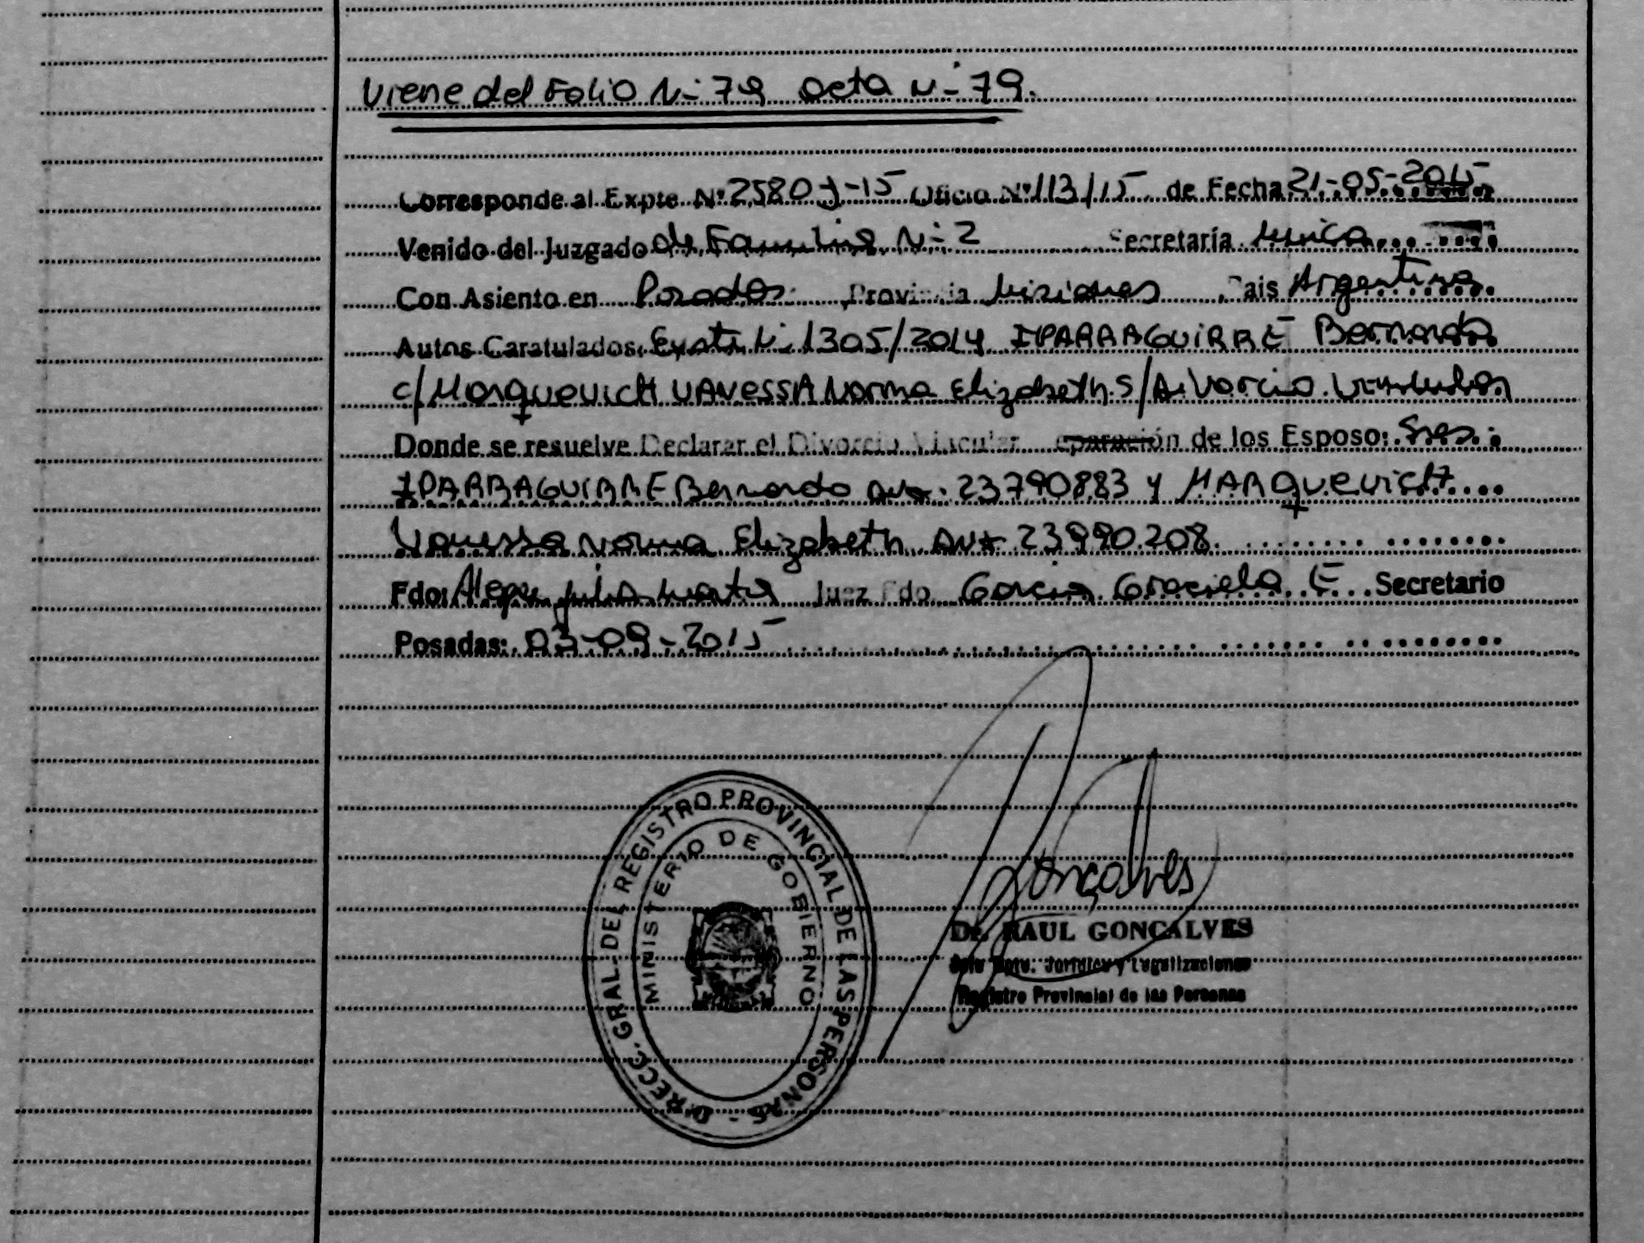 Viene del Folio N- 79 Acta N- 79.
Corresponde al Expte Nº 2580-J-15 Oficio Nº 113/15 de Fecha 21-05-2015
Venido del Juzgado de Familia N- 2 Secretaría Unica
Con Asiento en Posadas Provincia Misiones Pais Argentina
Autos Caratulados: Expte N- 1305/2014 IPARRAGUIRRE Bernardo
c/ Marquevich VANESSA Norma Elizabeth S/ Divorcio Vincular
Donde se resuelve Declarar el Divorcio Vincular eparación de los Esposo: Sres.
IPARRAGUIRRE Bernardo DNI. 23790883 y MARquevich
Vanessa Norma Elizabeth DNI 23990.208.
Fdo: Juez Fdo Garcia Graciela E. Secretario
Posadas: 03-09-2015
DIRECC. GRAL. DEL REGISTRO PROVINCIAL DE LAS PERSONAS -
MINISTERIO DE GOBIERNO
Goncalves
Dr. RAUL GONCALVES
Jefe Dpto. Jurídico y Legalizaciones
Registro Provincial de las Personas